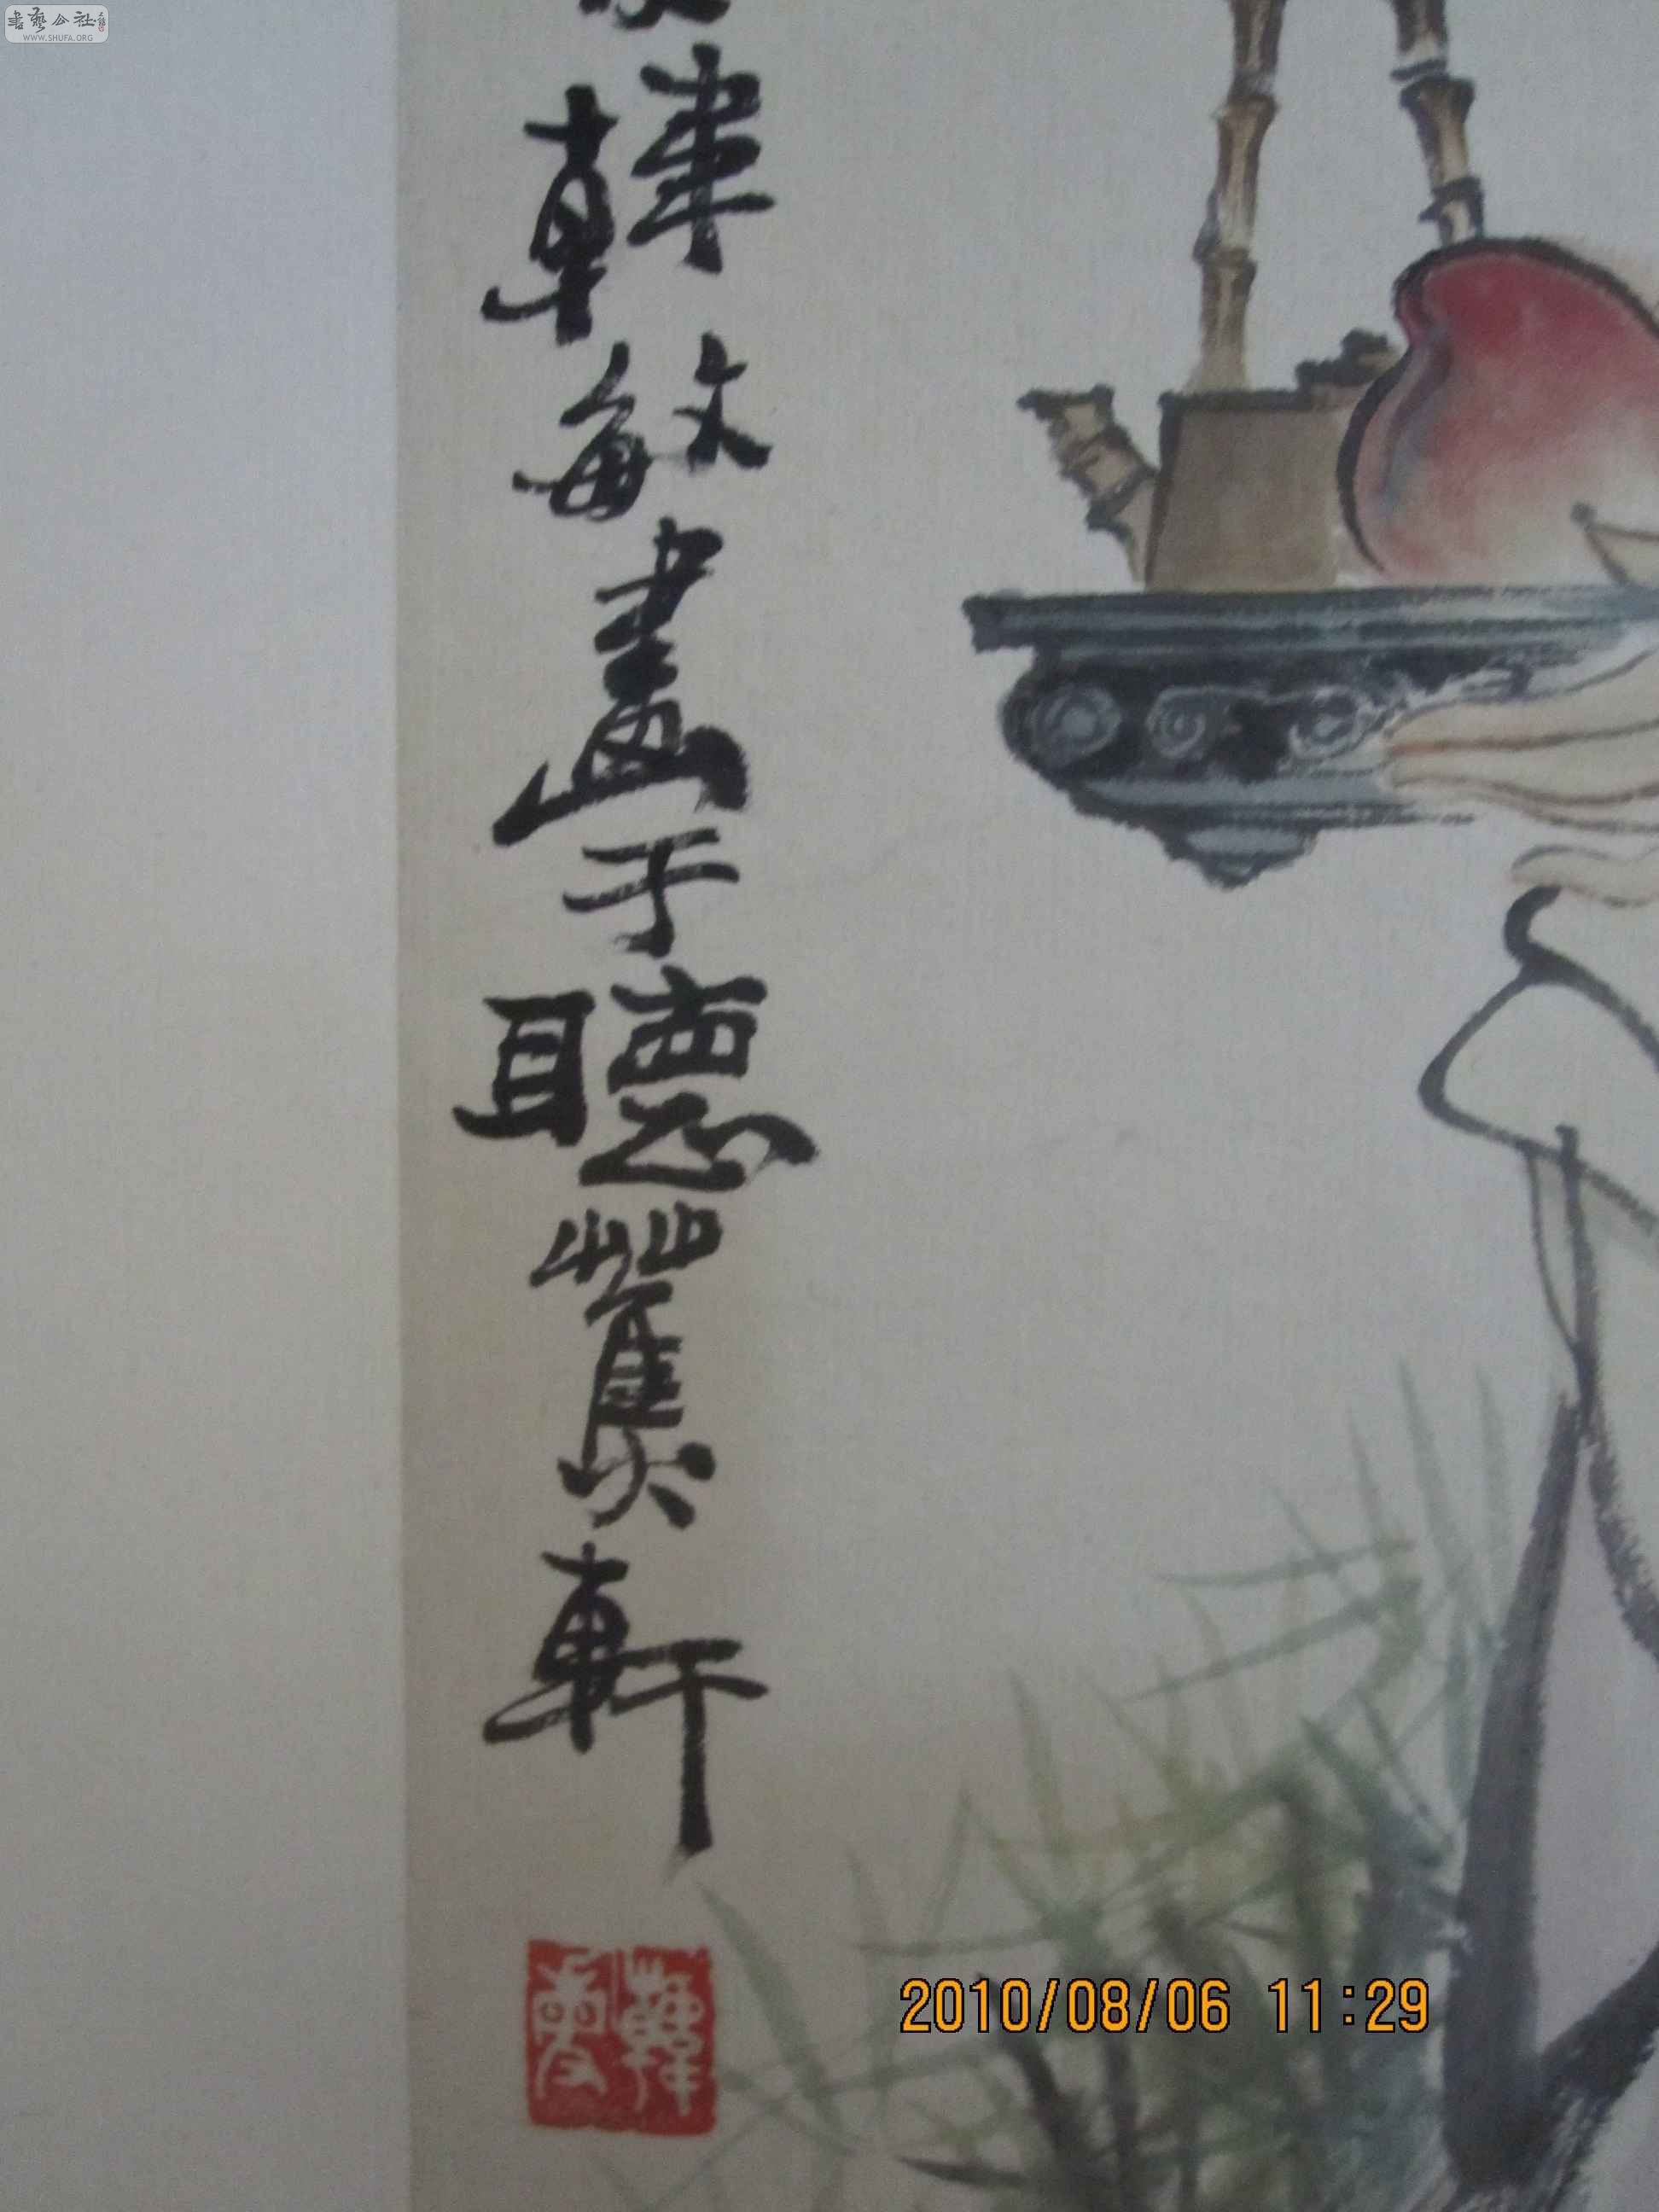 書藝公社
WWW.SHUFA.ORG
韓敏畫于聽鶯軒
韓敏
2010/08/06 11:29